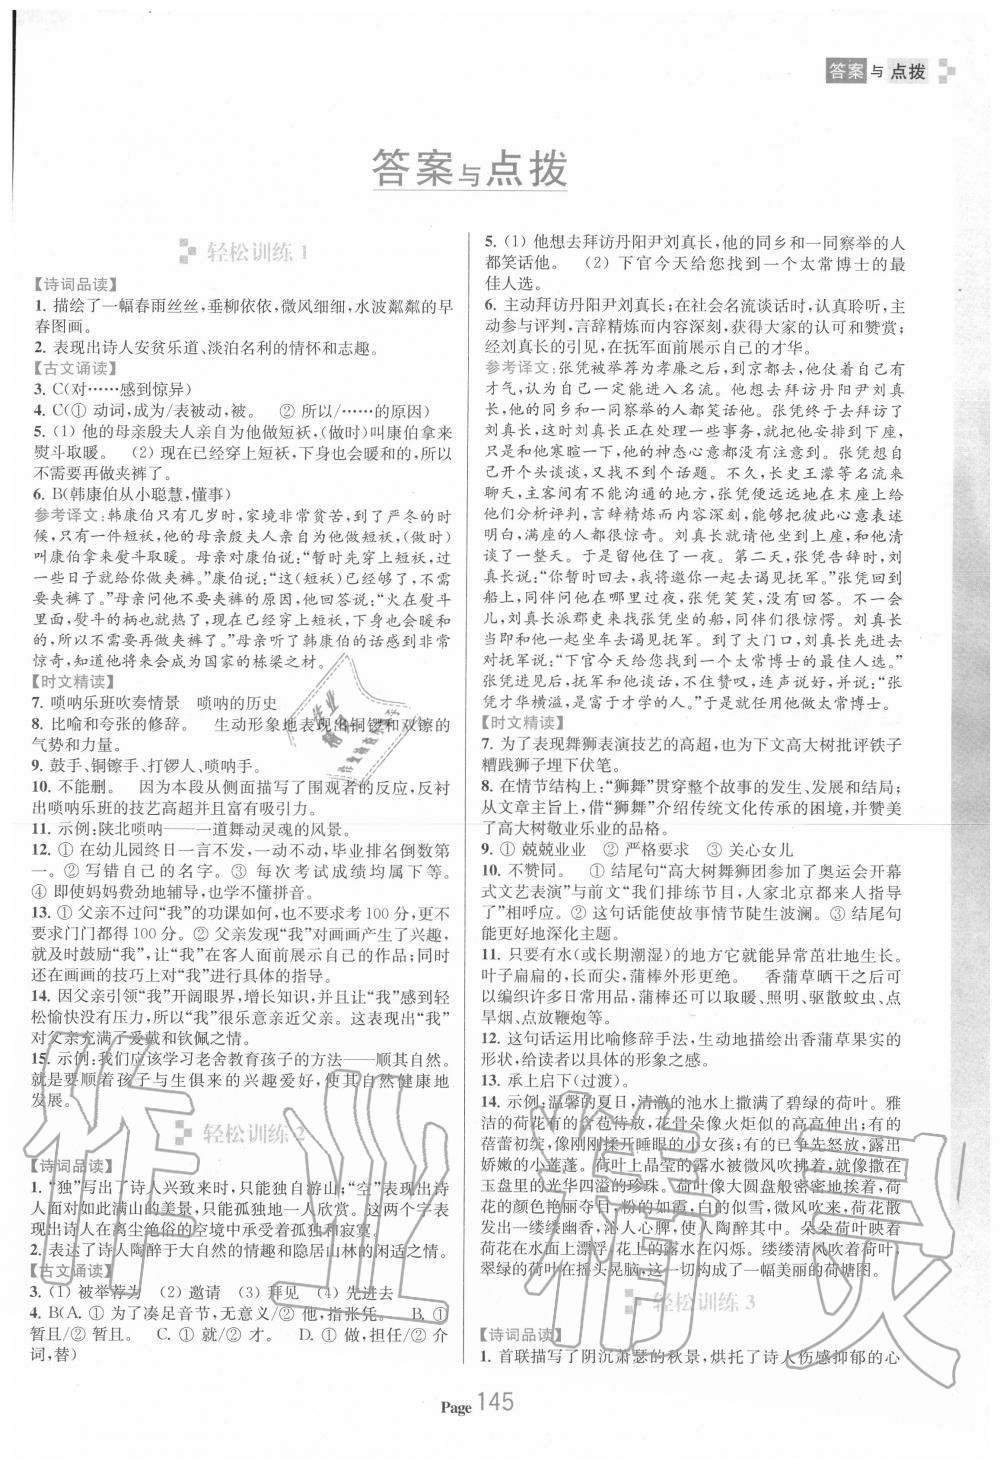 答案与点拨
答案与点拨
轻松训练1
【诗词品读】
1. 描绘了一幅春雨丝丝,垂柳依依,微风细细,水波粼粼的早
春图画。
2. 表现出诗人安贫乐道、淡泊名利的情怀和志趣。
【古文诵读】
3. C(对……感到惊异)
4. C(① 动词,成为/表被动,被。 ② 所以/……的原因)
5. (1) 他的母亲殷夫人亲自为他做短袄,(做时)叫康伯拿来
熨斗取暖。 (2) 现在已经穿上短袄,下身也会正要暖和的,所以
不需要再做夹裤了。
6. B(韩康伯从小聪慧,懂事)
参考译文:韩康伯只有几岁时,家境非常贫苦,到了严冬的时
候,只有一件短袄,他的母亲殷夫人亲自为他做短袄,(做时)
叫康伯拿来熨斗取暖。母亲对康伯说:“暂时先穿上短袄,过
一些日子就给你做夹裤。”康伯说:“这(短袄)已经够了,不
需要夹裤了。”母亲问他不要夹裤的原因,他回答说:“火在熨斗
里面,熨斗的柄也就热了,现在已经穿上短袄,下身也会暖和
的,所以不需要再做夹裤了。”母亲听了韩康伯的话感到非常
惊奇,知道他将来会成为国家的栋梁之材。
【时文精读】
7. 唢呐乐班吹奏情景 唢呐的历史
8. 比喻和夸张的修辞。 生动形象地表现出铜锣和双镲的
气势和力量。
9. 鼓手、铜镲手、打锣人、唢呐手。
10. 不能删。 因为本段从侧面描写了围观者的反应,反衬
出唢呐乐班的技艺高超并且富有吸引力。
11. 示例:陕北唢呐——一道舞动灵魂的风景。
12. ① 在幼儿园终日一言不发,一动不动,毕业排名倒数第
一。② 写错自己的名字。③ 每次考试成绩均属下等。
④ 即使妈妈费劲地辅导,也学不懂拼音。
13. ① 父亲不过问“我”的功课如何,也不要求考 100 分,更不
要求门门都得 100 分。② 父亲发现“我”对画画产生了兴趣,
就及时鼓励“我”,让“我”在客人面前展示自己的作品;同时
还在画画的技巧上对“我”进行具体的指导。
14. 因父亲引领“我”开阔眼界,增长知识,并且让“我”感到轻
松愉快没有压力,所以“我”很乐意亲近父亲。这表现出“我”
对父亲充满了爱戴和钦佩之情。
15. 示例:我们应该学习老舍教育孩子的方法——顺其自然。
就是要顺着孩子与生俱来的兴趣爱好,使其自然健康地
发展。
轻松训练2
【诗词品读】
1. “独”写出了诗人兴致来时,只能独自游山;“空”表现出诗
人面对如此满山的美景,只能孤独地一人欣赏。这两个字表
现出诗人在离尘绝俗的空境中承受着孤独和寂寞。
2. 表达了诗人陶醉于大自然的情趣和隐居山林的闲适之情。
【古文诵读】
3. (1) 被举荐为 (2) 邀请 (3) 拜见 (4) 先进去
4. B(A. ① 为了凑足音节,无意义/② 他,指张凭。 B. ①
暂且/② 暂且。 C. ① 就/② 才。 D. ① 做,担任/② 介
词,替)
5. (1) 他想去拜访丹阳尹刘真长,他的同乡和一同察举的人
都笑话他。 (2) 下官今天给您找到一个太常博士的最
佳人选。
6. 主动拜访丹阳尹刘真长;在社会名流谈话时,认真聆听,主
动参与评判,言辞精炼而内容深刻,获得大家的认可和赞赏;
经刘真长引荐,在抚军面前展示自己的才华。
参考译文:张凭被举荐为孝廉之后,到京都去,他仗着自己有
才气,认为自己一定能进入名流。他想去拜访丹阳尹刘真
长,他的同乡和一同察举的人都笑话他。张凭终于去拜访了
刘真长,这时刘真长正在处理一些事务,就把他安排到下座,
只是和他寒暄一下,他的神态心意都没有注意到。张凭想自
己开个头谈谈,又找不到个话题。不久,长史王濛等名流来
清谈,主客间有不能沟通的地方,张凭便远远地在末座上给
他们分析评判,言辞精炼而内容深刻,能够把彼此心意表述
明白,在座的人都很惊奇。刘真长就请他坐到上座,和他清
谈了一整天。于是留他住了一夜。第二天,张凭告辞时,刘
真长说:“你暂时回去,我将邀你一起去谒见抚军。”张凭回到
船上,同伴问他在哪里过夜,张凭笑笑,没有回答。不一会
儿,刘真长派郡吏来找张凭坐的船,同伴们很惊愕。刘真长
当即和他一起坐车去谒见抚军。到了大门口,刘真长先进去
对抚军说:“下官今天给您找到一个太常博士的最佳人选。”
张凭进见后,抚军和他谈话,不住赞叹,连声说好,并说:“张
凭才华横溢,是富于才学的人。”于是就任用他做太常博士。
【时文精读】
7. 为了表现舞狮表演技艺的高超,也为下文高大树批评铁子
糟践狮子埋下伏笔。
8. 在情节结构上:“狮舞”贯穿整个故事的发生、发展和结局;
从文章主旨上,借“狮舞”介绍传统文化传承的困境,并赞美
了高大树敬业乐业的品格。
9. ① 兢兢业业 ② 严格要求 ③ 关心女儿
10. 不赞同。 ① 结尾句“高大树舞狮团参加了奥运会开幕
式文艺表演”与前文“我们排练节目,人家北京都来人指导
了”相呼应。② 这句话能使故事情节陡生波澜。③ 结尾句
能更好地深化主题。
11. 只要有水(或长期潮湿)的地方它就能异常茁壮地生长。
叶子扁扁的,长而尖,蒲棒外形更绝。 香蒲草晒干之后可
以编织许多日用品,蒲棒还可以取暖、照明、驱散蚊虫、点
旱烟、点放鞭炮等。
12. 这句话运用比喻修辞手法,生动地描绘出香蒲草果实的
形状,给读者以具体的形象之感。
13. 承上启下(过渡)。
14. 示例:温馨的夏日,清澈的池水上撑满了碧绿的荷叶。雅
洁的荷花有的含苞待放,花骨朵像火炬似的高高伸出,有的
蓓蕾初绽,像刚刚揉开睡眼的小女孩;有的已尽情怒放,露出
娇嫩的小莲蓬。荷叶上晶莹的露水被微风吹拂着,就像撒在
玉盘里的光华四溢的珍珠。荷叶像大圆盘般密密地挨着,荷
花的颜色艳丽夺目,粉的如霞,白的似雪,微风吹来,荷花
发出一缕缕幽香,沁人心脾,使人陶醉其中。朵朵荷花映着
荷花在水面上漂浮,花上的露水在闪烁。缕缕清风吹动着,
翠绿的荷叶在摇头晃脑,这一切构成了一幅美丽的荷塘图。
轻松训练3
【诗词品读】
1. 首联描写了阴沉萧瑟的秋景,烘托了诗人伤感抑郁的心
Page 145
作业精灵